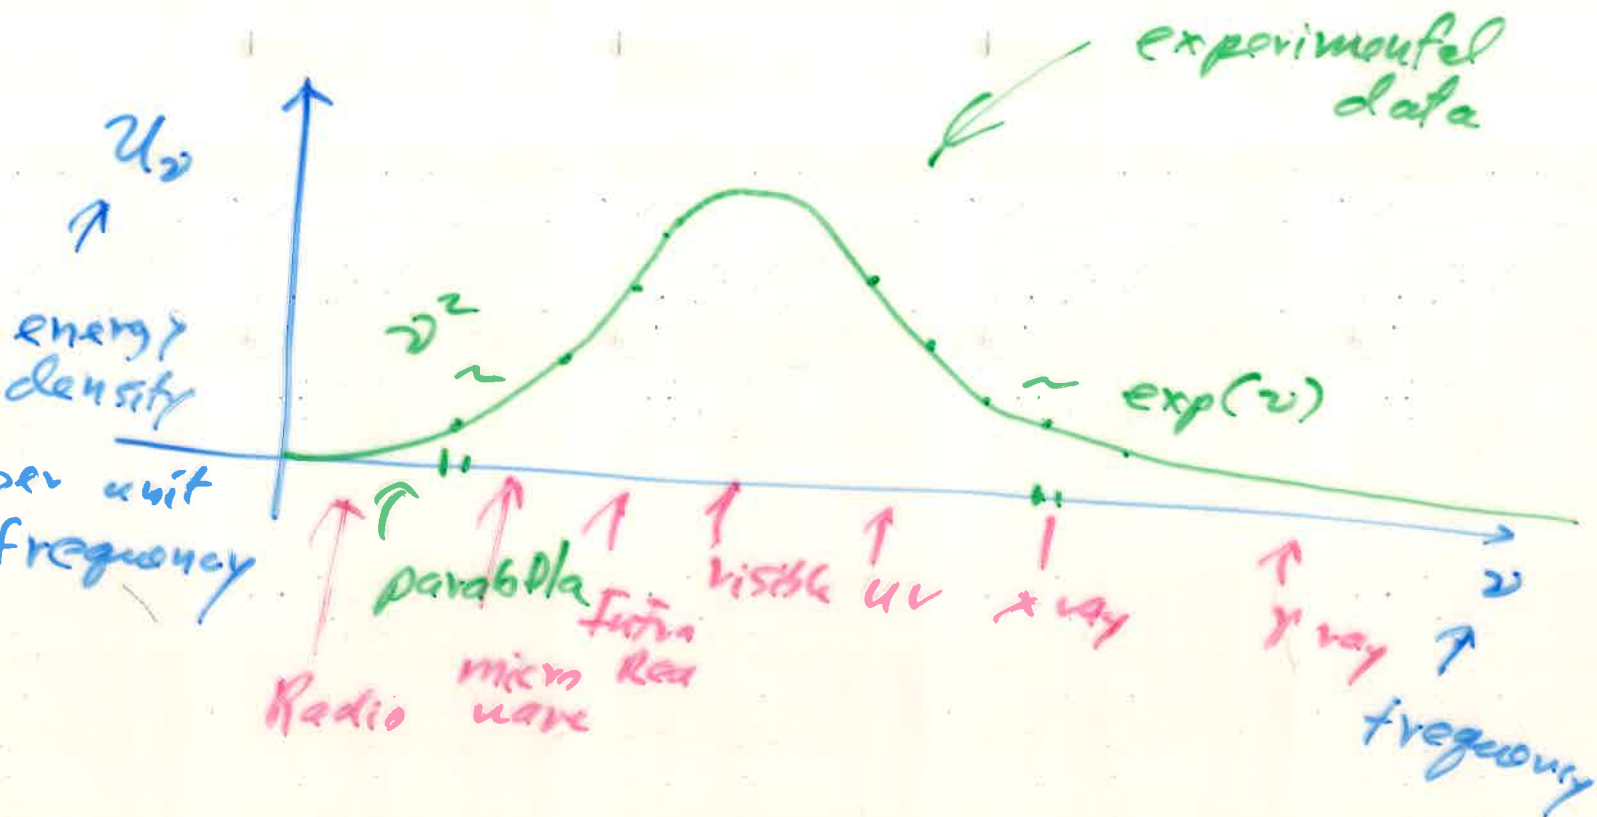 experimental
data
U_ν
energy
density
per unit
frequency
ν²
~
~ exp(ν)
parabola
Radio
micro
wave
Infra
Red
visible
UV
x ray
γ ray
ν
frequency